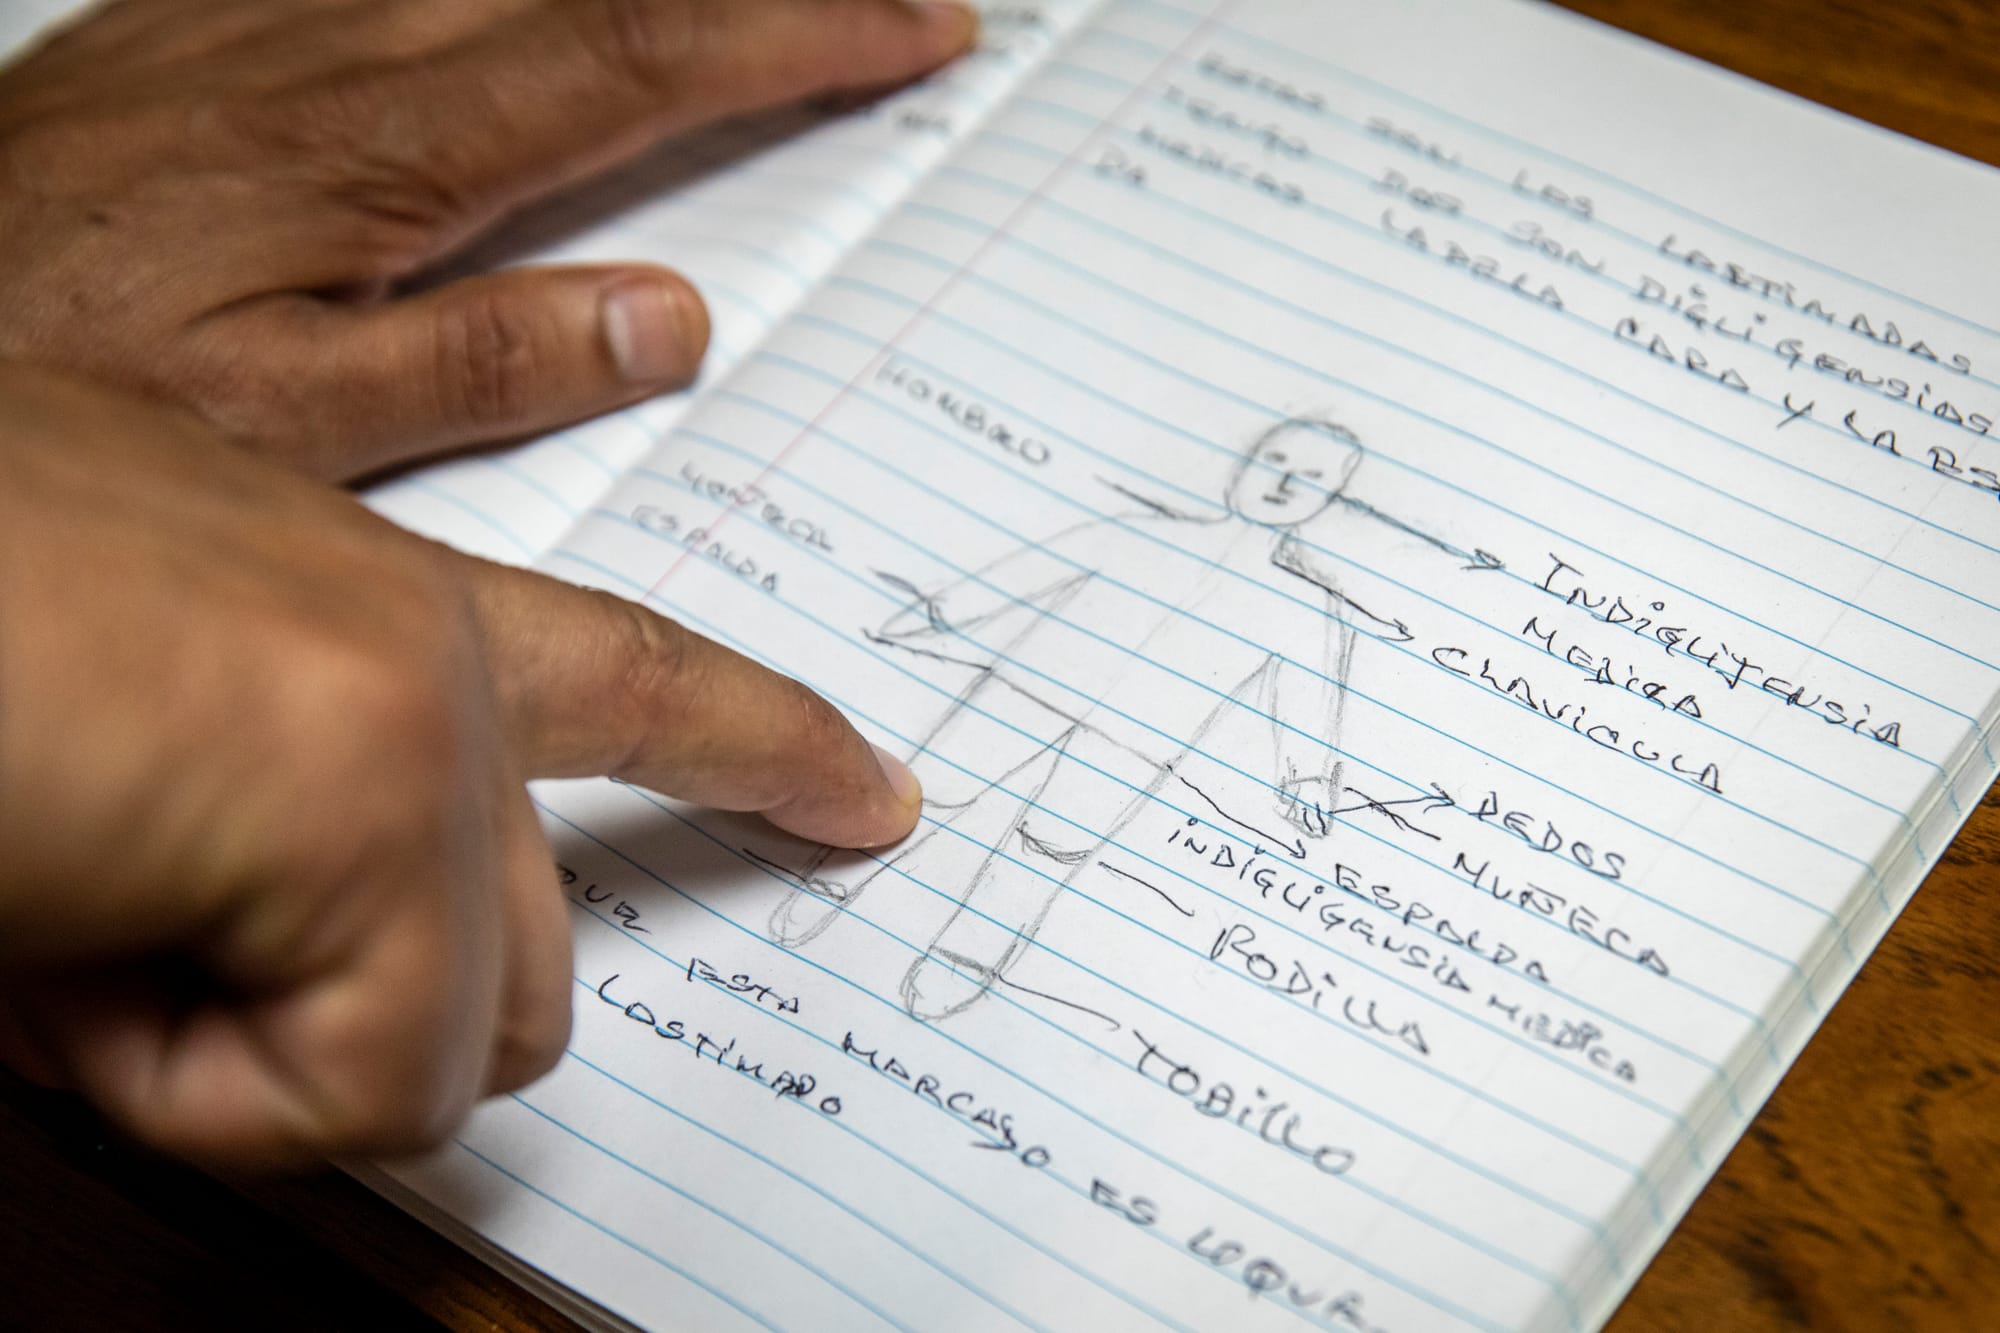 ESTAS SON LAS LASTIMADAS
TENGO DOS SON DIGLIGENSIAS
MEDICAS LA DE LA CARA Y LA ES
DA
HOMBRO
ESPALDA
INDIGLITENSIA
MEDICA
CLAVICULA
DEDOS
MUÑECA
ESPALDA
INDIGLIGENSIA MEDICA
RODILLA
TOBILLO
ESTA MARCASO ES LOQUE
LASTIMADO